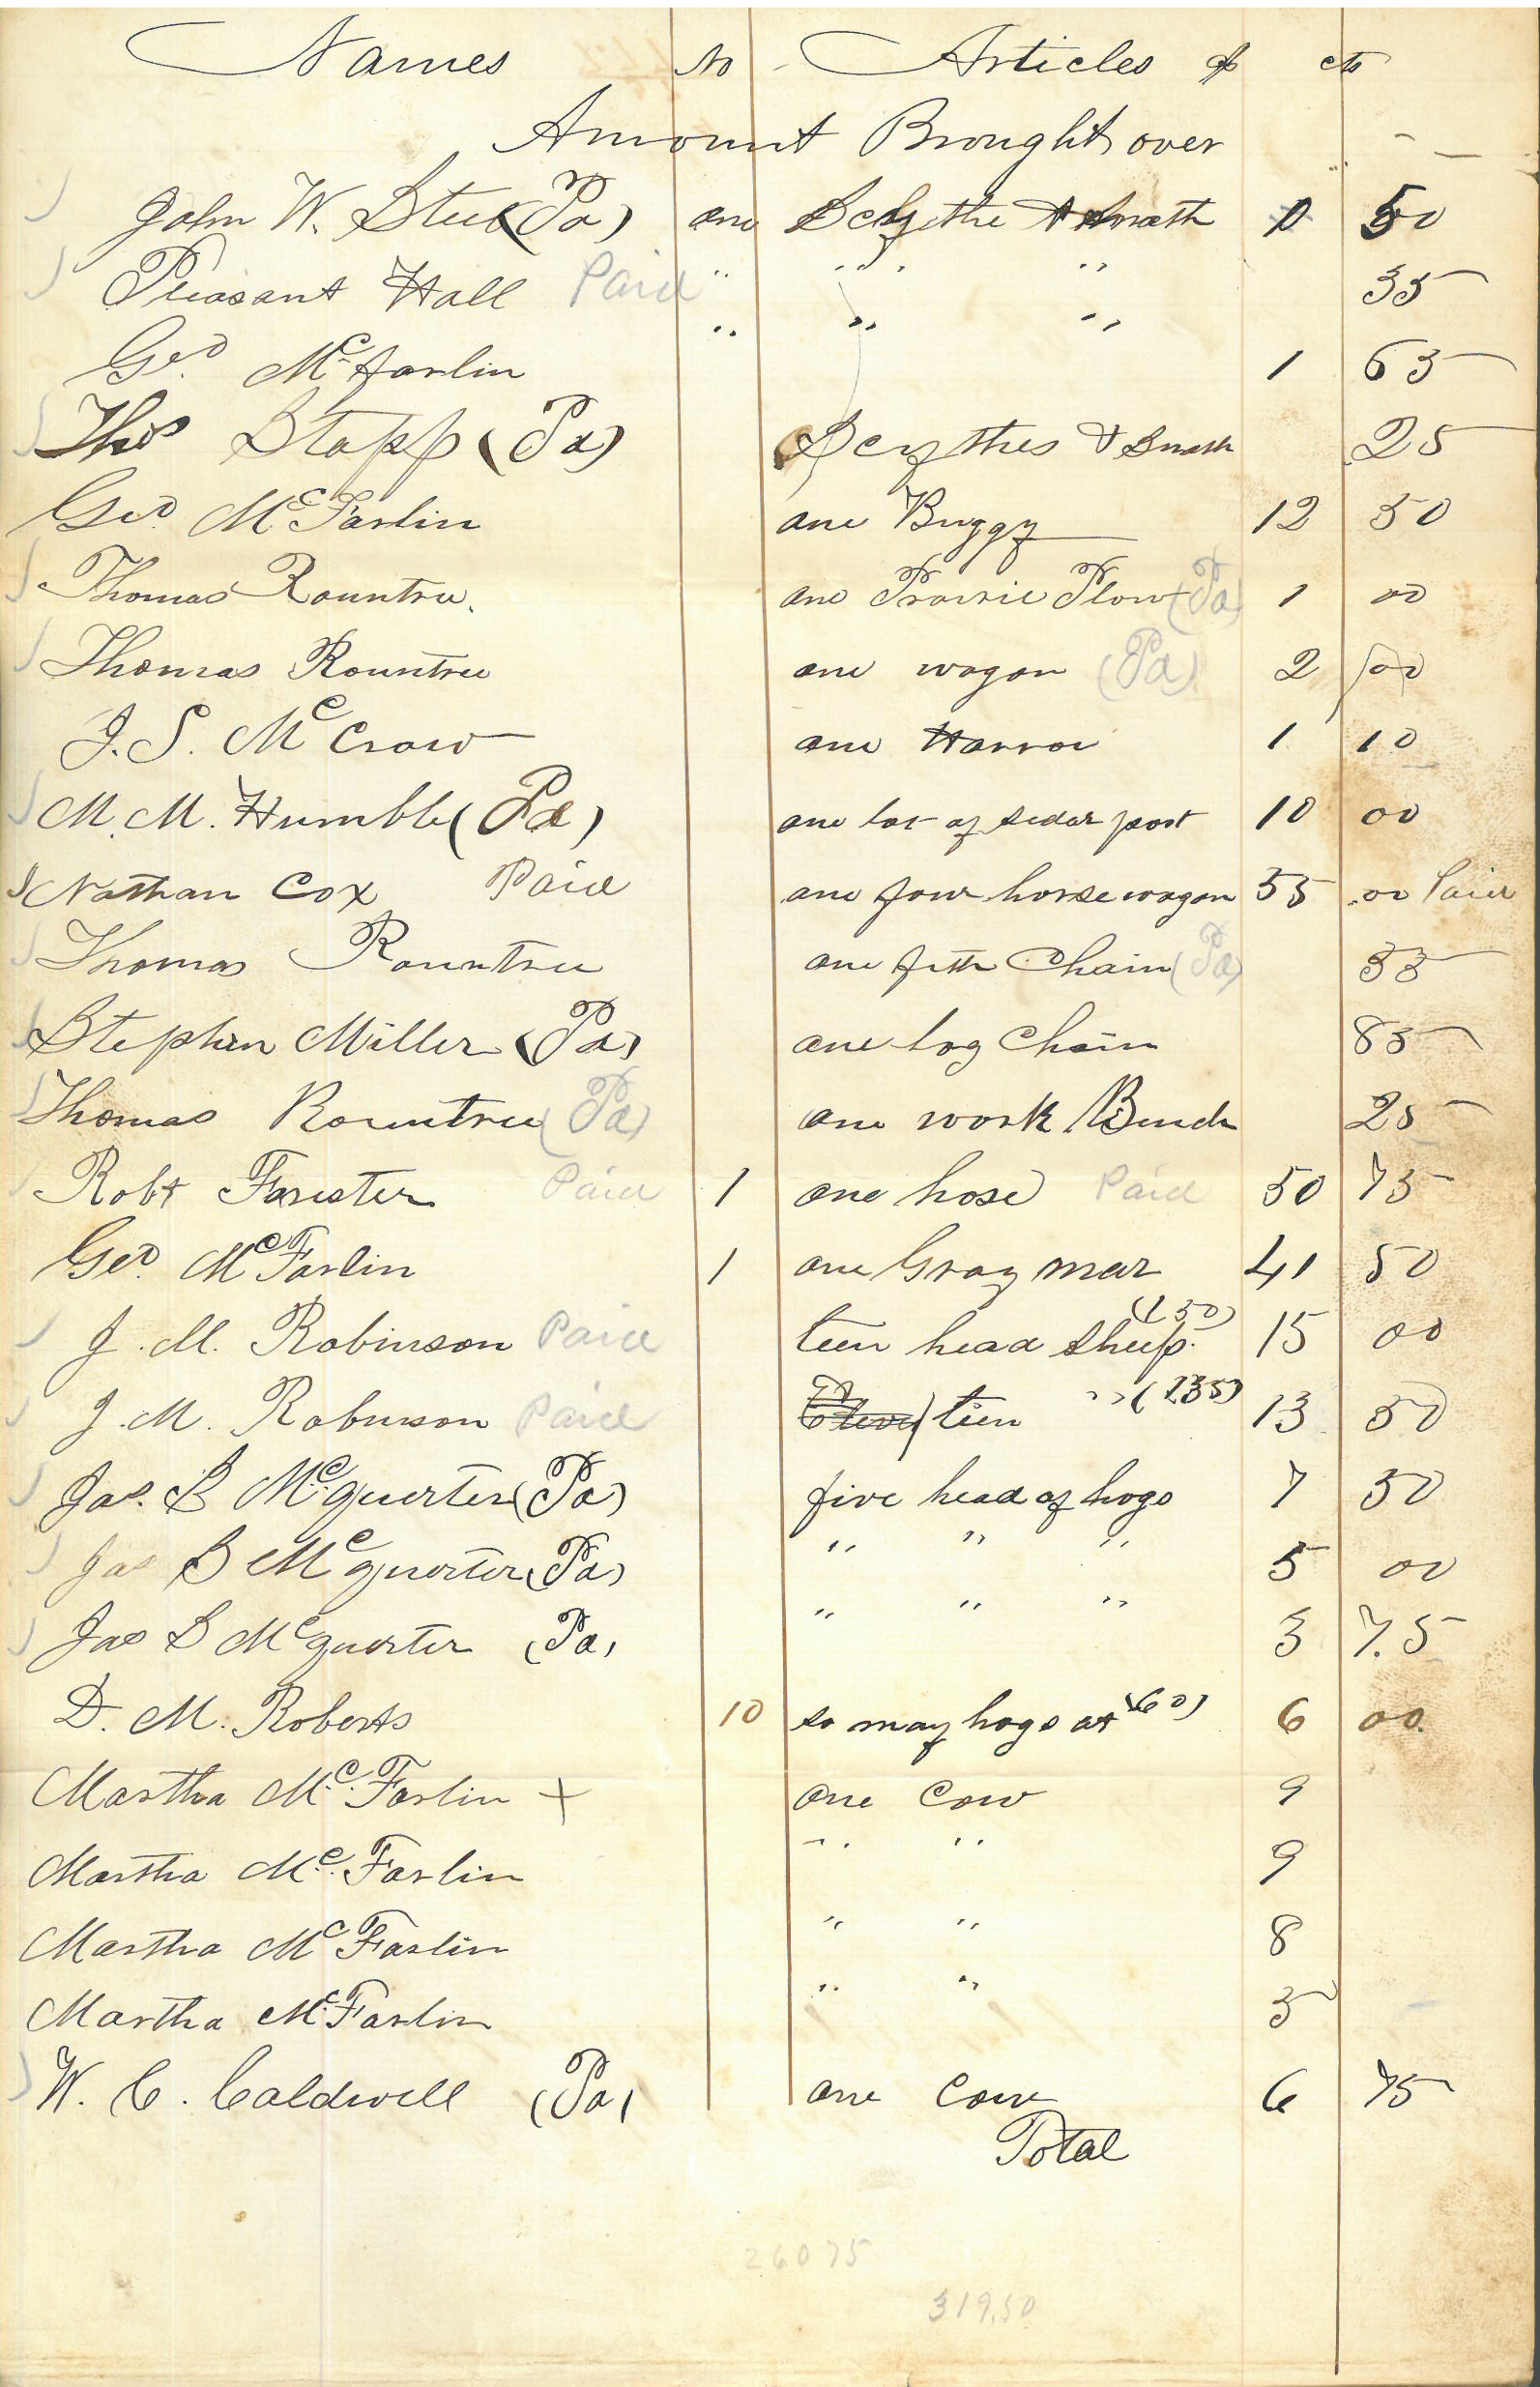 Names No Articles $ cts
Amount Brought over
John W. Steel (Pa) one Scythe & Snath 0 50
Pleasant Hall Paid " " " 35
Geo. McFarlin " " " 1 65
Thos Stapp (Pa) Scythes & Snath 25
Geo. McFarlin one Buggy 12 50
Thomas Rountree one Prairie Plow (Pa) 1 00
Thomas Rountree one wagon (Pa) 2 00
J. S. McCraw one Harrow 1 10
M. M. Humble (Pa) one lot of sedar post 10 00
Nathan Cox Paid one four horse wagon 55 .00 Paid
Thomas Rountree one fifth Chain (Pa) 55
Stephen Miller (Pa) one log Chain 85
Thomas Rountree (Pa) one work Bench 25
Robt Forister Paid 1 one hose Paid 50 75
Geo. McFarlin 1 one Gray mar 41 50
J. M. Robinson Paid teen head sheep (150) 15 00
J. M. Robinson Paid teen " (135) 13 50
Jas. S McQuerter (Pa) five head of hogs 7 50
Jas S McQuerter (Pa) " " " 5 00
Jas S McQuerter (Pa) " " " 3 75
D. M. Roberts 10 so many hogs at (60) 6 00
Martha McFarlin + one Cow 9
Martha McFarlin " " 9
Martha McFarlin " " 8
Martha McFarlin " " 5
W. C. Caldwell (Pa) one Cow 6 75
Total
26075
319.50